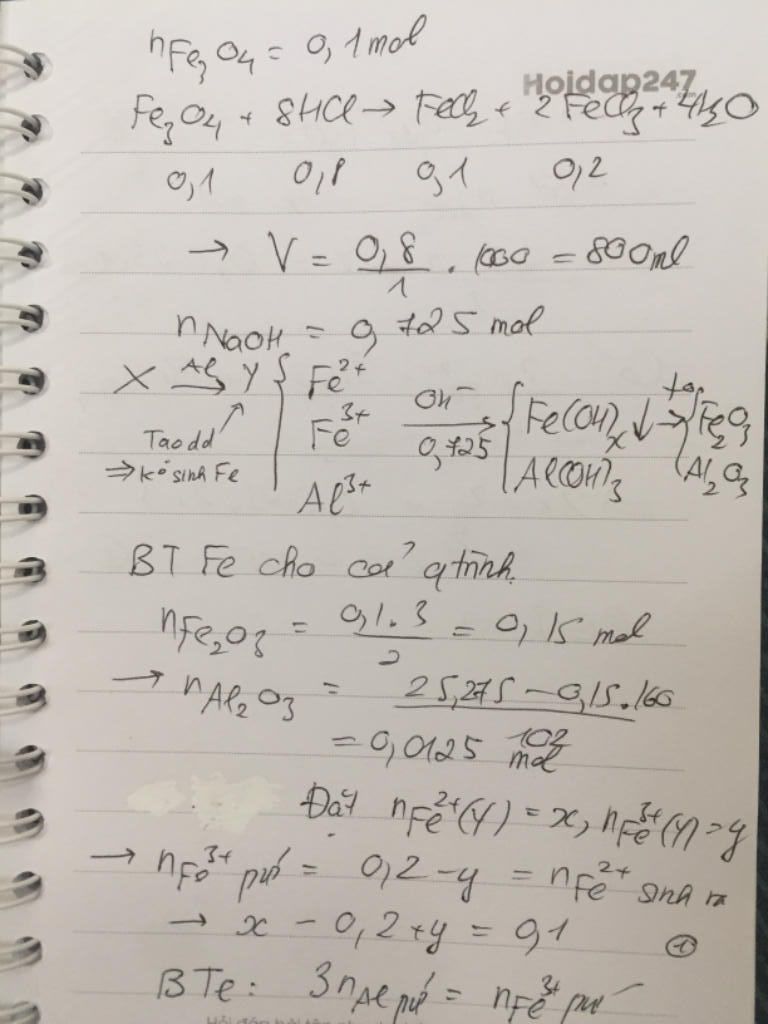 nFe3O4 = 0,1 mol
Hoidap247
.com
Fe3O4 + 8HCl → FeCl2 + 2FeCl3 + 4H2O
0,1 0,8 0,1 0,2
→ V = 0,8/1 . 1000 = 800ml
nNaOH = 0,725 mol
X Al→ Y { Fe2+ Fe3+ Al3+ OH-→ 0,725 { Fe(OH)x ↓ Al(OH)3 to→ { Fe2O3 Al2O3
Tạo dd
⇒ ko sinh Fe
BT Fe cho cả qtrình.
nFe2O3 = 0,1.3/2 = 0,15 mol
→ nAl2O3 = 25,275 – 0,15.160/102
= 0,0125 mol
Đặt nFe2+(Y) = x, nFe3+(Y) = y
→ nFe3+ pứ = 0,2 - y = nFe2+ sinh ra
→ x - 0,2 + y = 0,1 ①
BTe: 3nAl pứ = nFe3+ pứ